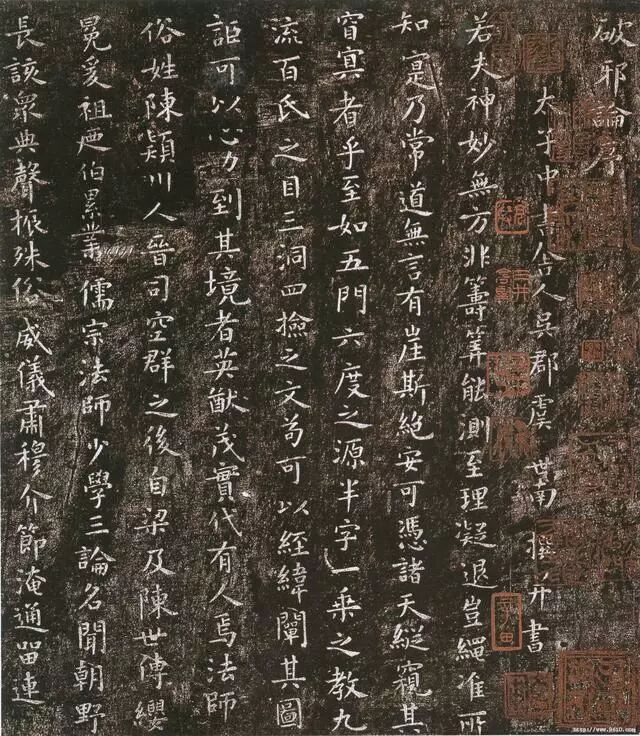 破邪論序
太子中書舍人吳郡虞世南撰并書
若夫神妙無方非籌筭能測至理凝退豈繩准所
知寔乃常道無言有崖斯絕安可憑諸天縱窺其
窅冥者乎至如五門六度之源半字一乘之教九
流百氏之目三洞四撿之文苟可以經緯闡其圖
詎可以心力到其境者英猷茂實代有人焉法師
俗姓陳潁川人晉司空群之後自梁及陳世傳纓
冕爰祖及伯累業儒宗法師少學三論名聞朝野
長該衆典聲振殊俗威儀肅穆介節淹通留連
http://www.9610.com